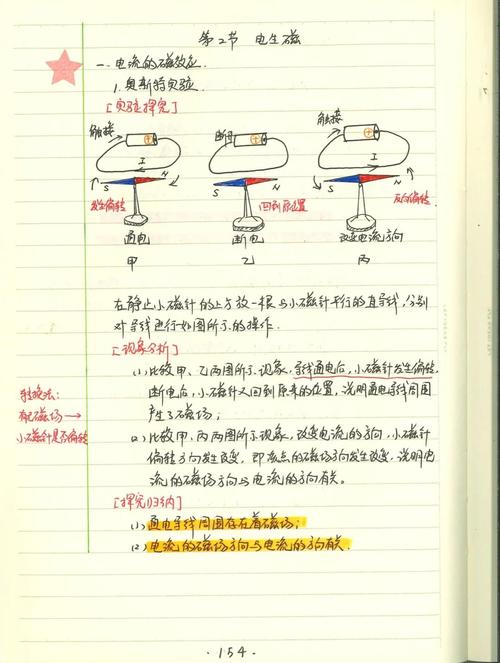 第2节 电生磁
一.电流的磁效应.
1.奥斯特实验.
[实验探究]
触接 断开 触接
I I
S N S N S N
发生偏转 回到原位置 反向偏转
通电 断电 改变电流方向
甲 乙 丙
在静止小磁针的上方放一根与小磁针平行的直导线,分别
对导线进行如图所示的操作.
[现象分析]
(1)比较甲、乙两图所示现象,导线通电后,小磁针发生偏转,
断电后,小磁针又回到原来的位置,说明通电导线周围
产生了磁场;
(2)比较甲、丙两图所示现象,改变电流的方向,小磁针
偏转方向发生改变,即该点的磁场方向发生改变,说明电
流的磁场方向与电流的方向有关。
转换法:
有无磁场→
小磁针是否偏转
[探究归纳]
(1)通电导线周围存在着磁场;
(2)电流的磁场方向与电流的方向有关.
·154·